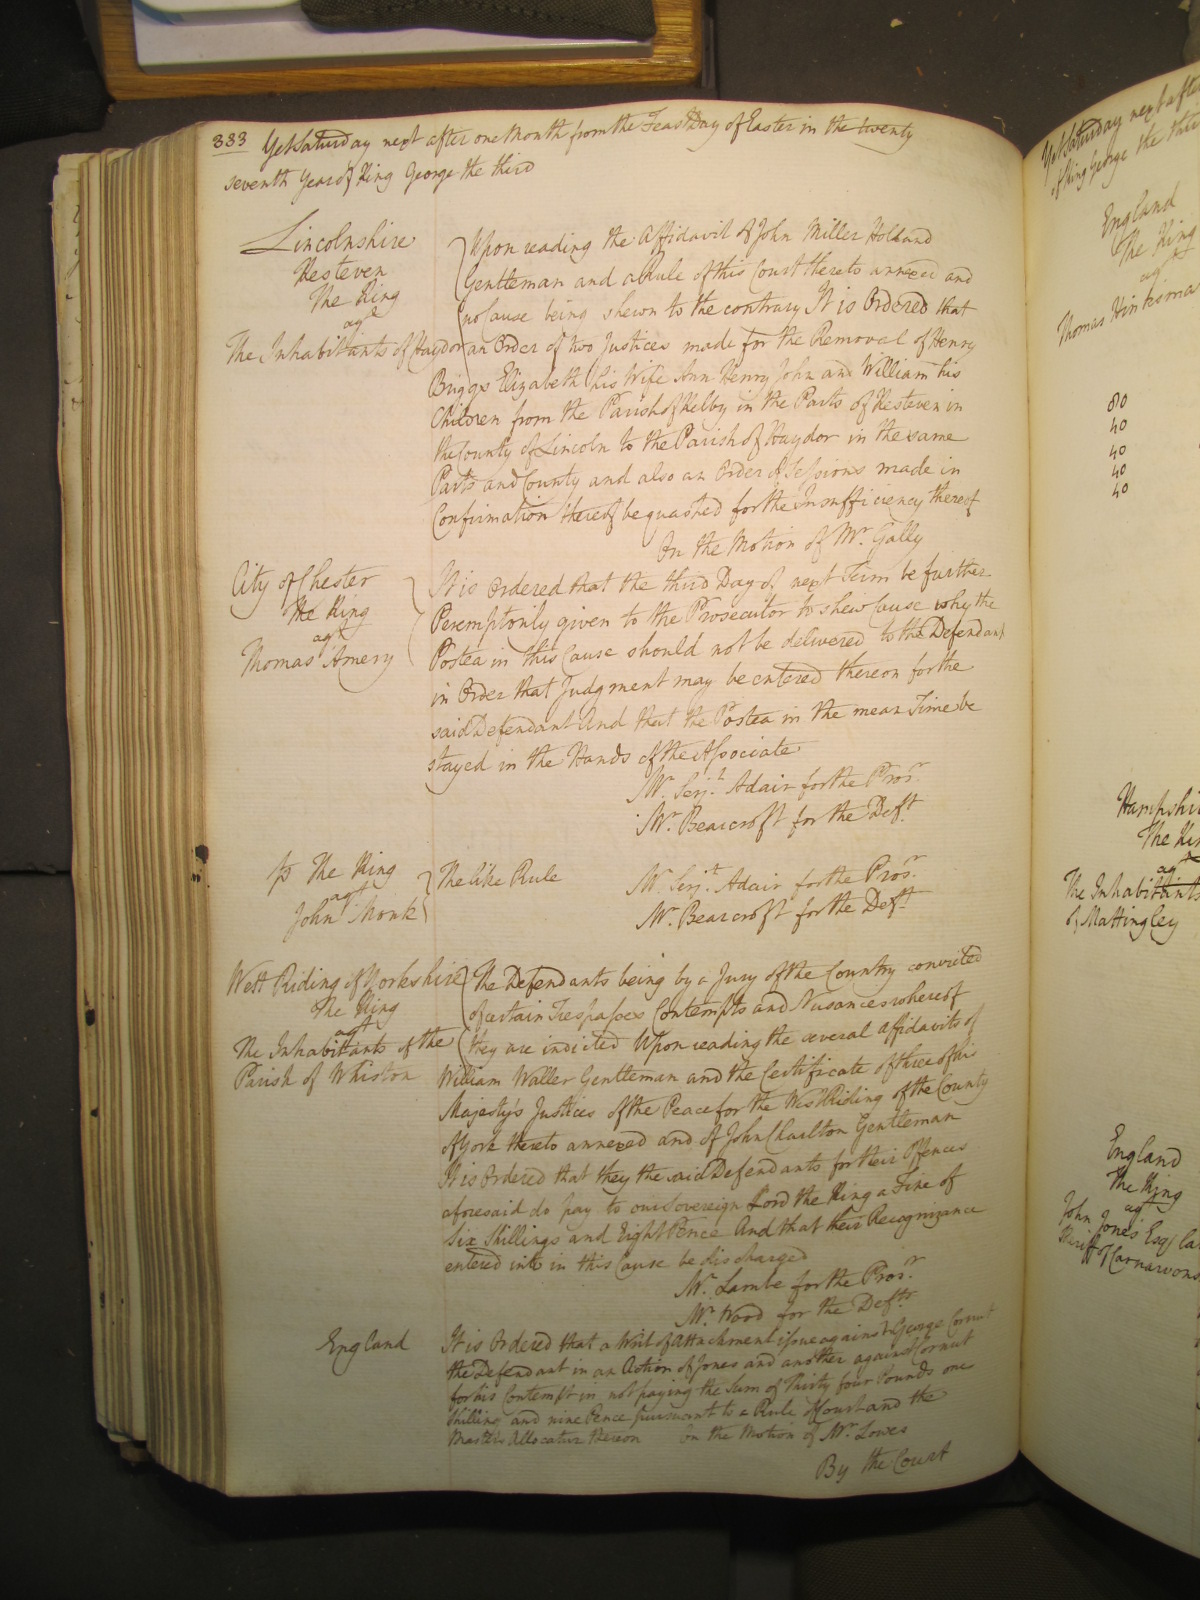 383 Yet Saturday next after one Month from the Feast Day of Easter in the twenty
seventh Year of King George the third
Lincolnshire
Kesteven
The King
agt
The Inhabitants of Haydor
Upon reading the Affidavit of John Miller Holland
Gentleman and a Rule of this Court thereto annexed and
no Cause being shewn to the contrary It is Ordered that
an Order of two Justices made for the Removal of Henry
Briggs Elizabeth his Wife Ann Henry John and William his
Children from the Parish of Kelby in the Parts of Kesteven in
the County of Lincoln to the Parish of Haydor in the same
Parts and County and also an Order of Sessions made in
Confirmation thereof be quashed for the Insufficiency thereof
On the Motion of Mr. Gally
City of Chester
The King
agt
Thomas Amery
It is Ordered that the third Day of next Term be further
Peremptorily given to the Prosecutor to shew Cause why the
Postea in this Cause should not be delivered to the Defendant
in Order that Judgment may be entered thereon for the
said Defendant And that the Postea in the mean Time be
stayed in the Hands of the Associate
Mr. Serjt. Adair for the Prosr.
Mr. Bearcroft for the Deft.
The King
agt
John Monk
The like Rule
Mr. Serjt. Adair for the Prosr.
Mr. Bearcroft for the Deft.
West Riding of Yorkshire
The King
agt
The Inhabitants of the
Parish of Whiston
The Defendants being by a Jury of the Country convicted
of certain Trespasses Contempts and Nusances whereof
they are indicted Upon reading the several Affidavits of
William Waller Gentleman and the Certificate of three of his
Majesty's Justices of the Peace for the West Riding of the County
of York thereto annexed and of John Charlton Gentleman
It is Ordered that they the said Defendants for their Offences
aforesaid do pay to our Sovereign Lord the King a Fine of
Six Shillings and Eight Pence And that their Recognizance
entered into in this Cause be discharged
Mr. Lambe for the Prosr.
Mr. Wood for the Defts.
England
It is Ordered that a Writ of Attachment issue against George Cornut
the Defendant in an Action of Jones and another against Cornut
for his Contempt in not paying the Sum of Thirty four Pounds one
Shilling and nine Pence pursuant to a Rule of Court and the
Masters Allocatur thereon On the Motion of Mr. Lowes
By the Court
Yet Saturday next after
of King George the third
England
The King
agt
Thomas
80
40
40
40
40
Hampshi
The Kin
agt
The Inhabitants
of Mattingley
England
The King
agt
John Jones Esq
Sheriff of Carnarvons